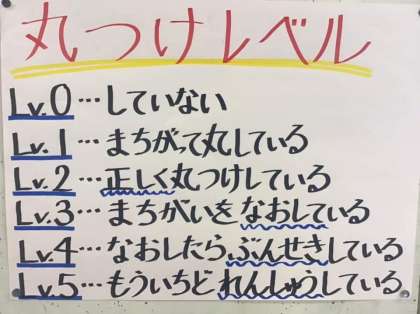 丸つけレベル
Lv.0…していない
Lv.1…まちがって丸している
Lv.2…正しく丸つけしている
Lv.3…まちがいをなおしている
Lv.4…なおしたらぶんせきしている
Lv.5…もういちどれんしゅうしている